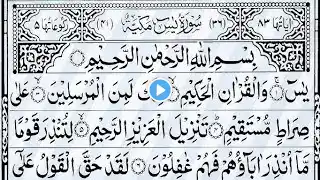 اٰيَاتُهَا ٨٣ (٣٦) سُوْرَةُ يٰسٓ مَكِّيَّةٌ (٤١) رُكُوْعَاتُهَا ٥
بِسْمِ اللّٰهِ الرَّحْمٰنِ الرَّحِيْمِ
يٰسٓ ۚ وَالْقُرْاٰنِ الْحَكِيْمِ ۙ لَمِنَ الْمُرْسَلِيْنَ ۙ عَلٰى
صِرَاطٍ مُّسْتَقِيْمٍ ؕ تَنْزِيْلَ الْعَزِيْزِ الرَّحِيْمِ ۙ لِتُنْذِرَ قَوْمًا
مَّاۤ اُنْذِرَ اٰبَآؤُهُمْ فَهُمْ غٰفِلُوْنَ لَقَدْ حَقَّ الْقَوْلُ عَلٰٓى